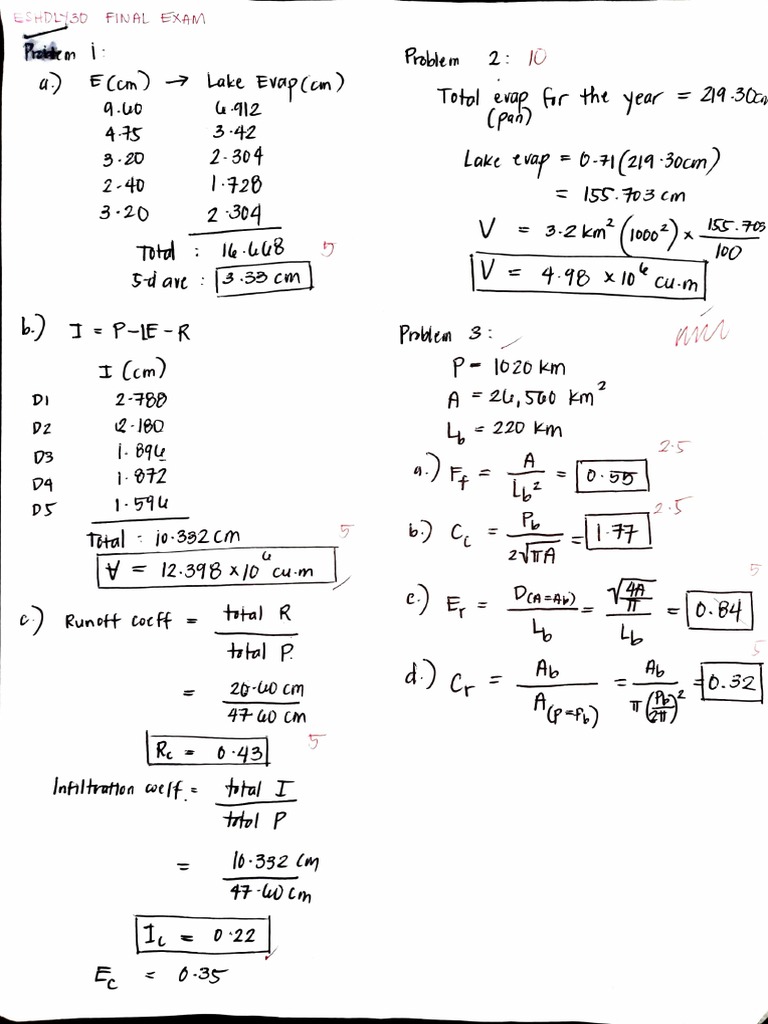 ESHDLY30 FINAL EXAM
Problem 1:
a.) E(cm) → Lake Evap(cm)
9.60 6.912
4.75 3.42
3.20 2.304
2.40 1.728
3.20 2.304
Total : 16.668 5
5-d ave : 3.33 cm
b.) I = P-LE-R
I (cm)
D1 2.788
D2 2.180
D3 1.896
D4 1.872
D5 1.596
Total : 10.332 cm 5
V = 12.398 x10^6 cu.m
c.) Runoff coeff = total R / total P.
= 20.60 cm / 47.60 cm
Rc = 0.43 5
Infiltration coeff. = total I / total P
= 10.332 cm / 47.60 cm
Ic = 0.22
Ec = 0.35
Problem 2: 10
Total evap for the year = 219.30cm
(pan)
Lake evap = 0.71(219.30cm)
= 155.703 cm
V = 3.2 km² (1000²) x 155.703 / 100
V = 4.98 x10^6 cu.m
Problem 3:
P = 1020 km
A = 26,560 km²
Lb = 220 km
a.) Ff = A / Lb² = 0.55 2.5
b.) Cc = Pb / 2√πA = 1.77 2.5
c.) Er = D(A=Ab) / Lb = √4A/π / Lb = 0.84 5
d.) Cr = Ab / A(P=Pb) = Ab / π(Pb/2π)² = 0.32 5